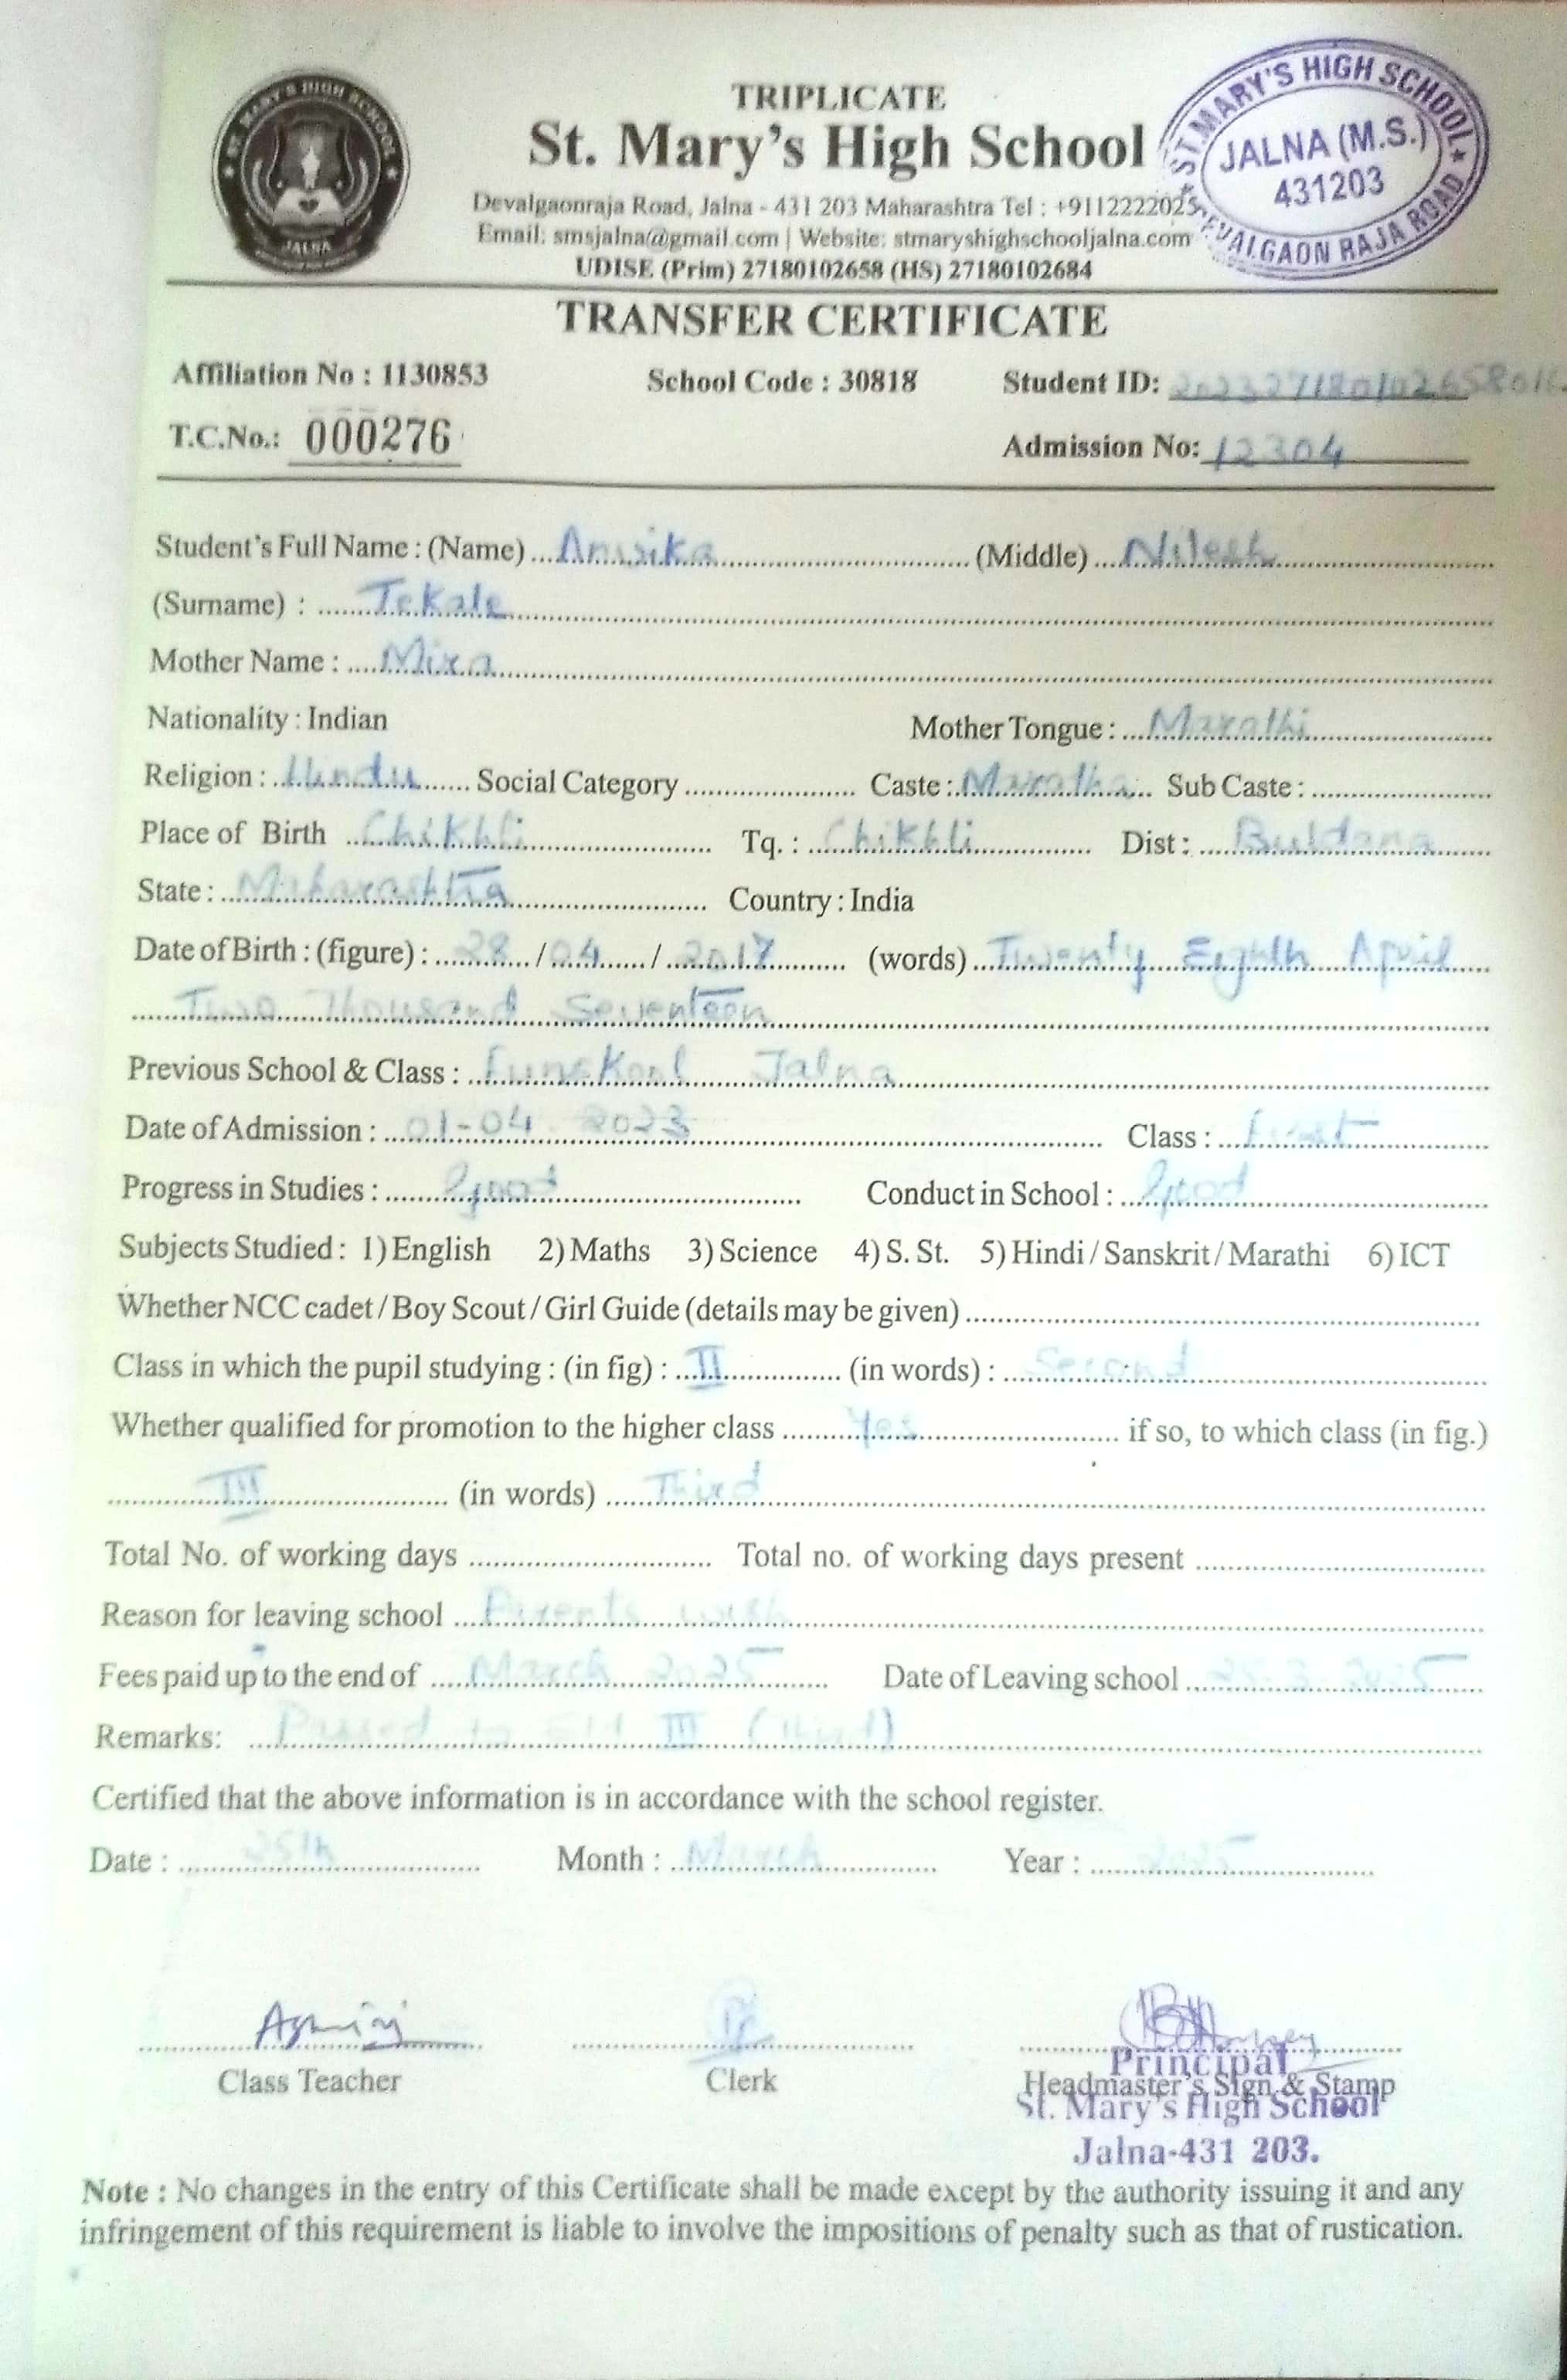 TRIPLICATE
St. Mary's High School
Devalgaonraja Road, Jalna - 431 203 Maharashtra Tel : +9112222025
Email: smsjalna@gmail.com | Website: stmaryshighschooljalna.com
UDISE (Prim) 27180102658 (HS) 27180102684
ST. MARY'S HIGH SCHOOL
JALNA (M.S.)
431203
DEVALGAON RAJA ROAD
ST. MARY'S HIGH SCHOOL
JALNA
TRANSFER CERTIFICATE
Affiliation No : 1130853 School Code : 30818 Student ID:
T.C.No.: 000276 Admission No: 12304
Student's Full Name : (Name) (Middle) Nilesh
(Surname) : Tekale
Mother Name : Mira
Nationality : Indian Mother Tongue : Marathi
Religion : Hindu Social Category Caste : Maratha Sub Caste :
Place of Birth Chikhli Tq. : Chikhli Dist : Buldana
State : Maharashtra Country : India
Date of Birth : (figure) : 28 / 04 / 2017 (words) Twenty Eighth April
Two Thousand Seventeen
Previous School & Class : Funskool Jalna
Date of Admission : 01-04 2023 Class : First
Progress in Studies : Good Conduct in School : Good
Subjects Studied : 1) English 2) Maths 3) Science 4) S. St. 5) Hindi / Sanskrit / Marathi 6) ICT
Whether NCC cadet / Boy Scout / Girl Guide (details may be given)
Class in which the pupil studying : (in fig) : II (in words) : Second
Whether qualified for promotion to the higher class Yes if so, to which class (in fig.)
III (in words) Third
Total No. of working days Total no. of working days present
Reason for leaving school Parents wish
Fees paid up to the end of March 2025 Date of Leaving school 25-3-2025
Remarks: Passed to Std III (third)
Certified that the above information is in accordance with the school register.
Date : 25th Month : March Year : 2025
Class Teacher Clerk Headmaster's Sign & Stamp
Principal
St. Mary's High School
Jalna-431 203.
Note : No changes in the entry of this Certificate shall be made except by the authority issuing it and any
infringement of this requirement is liable to involve the impositions of penalty such as that of rustication.